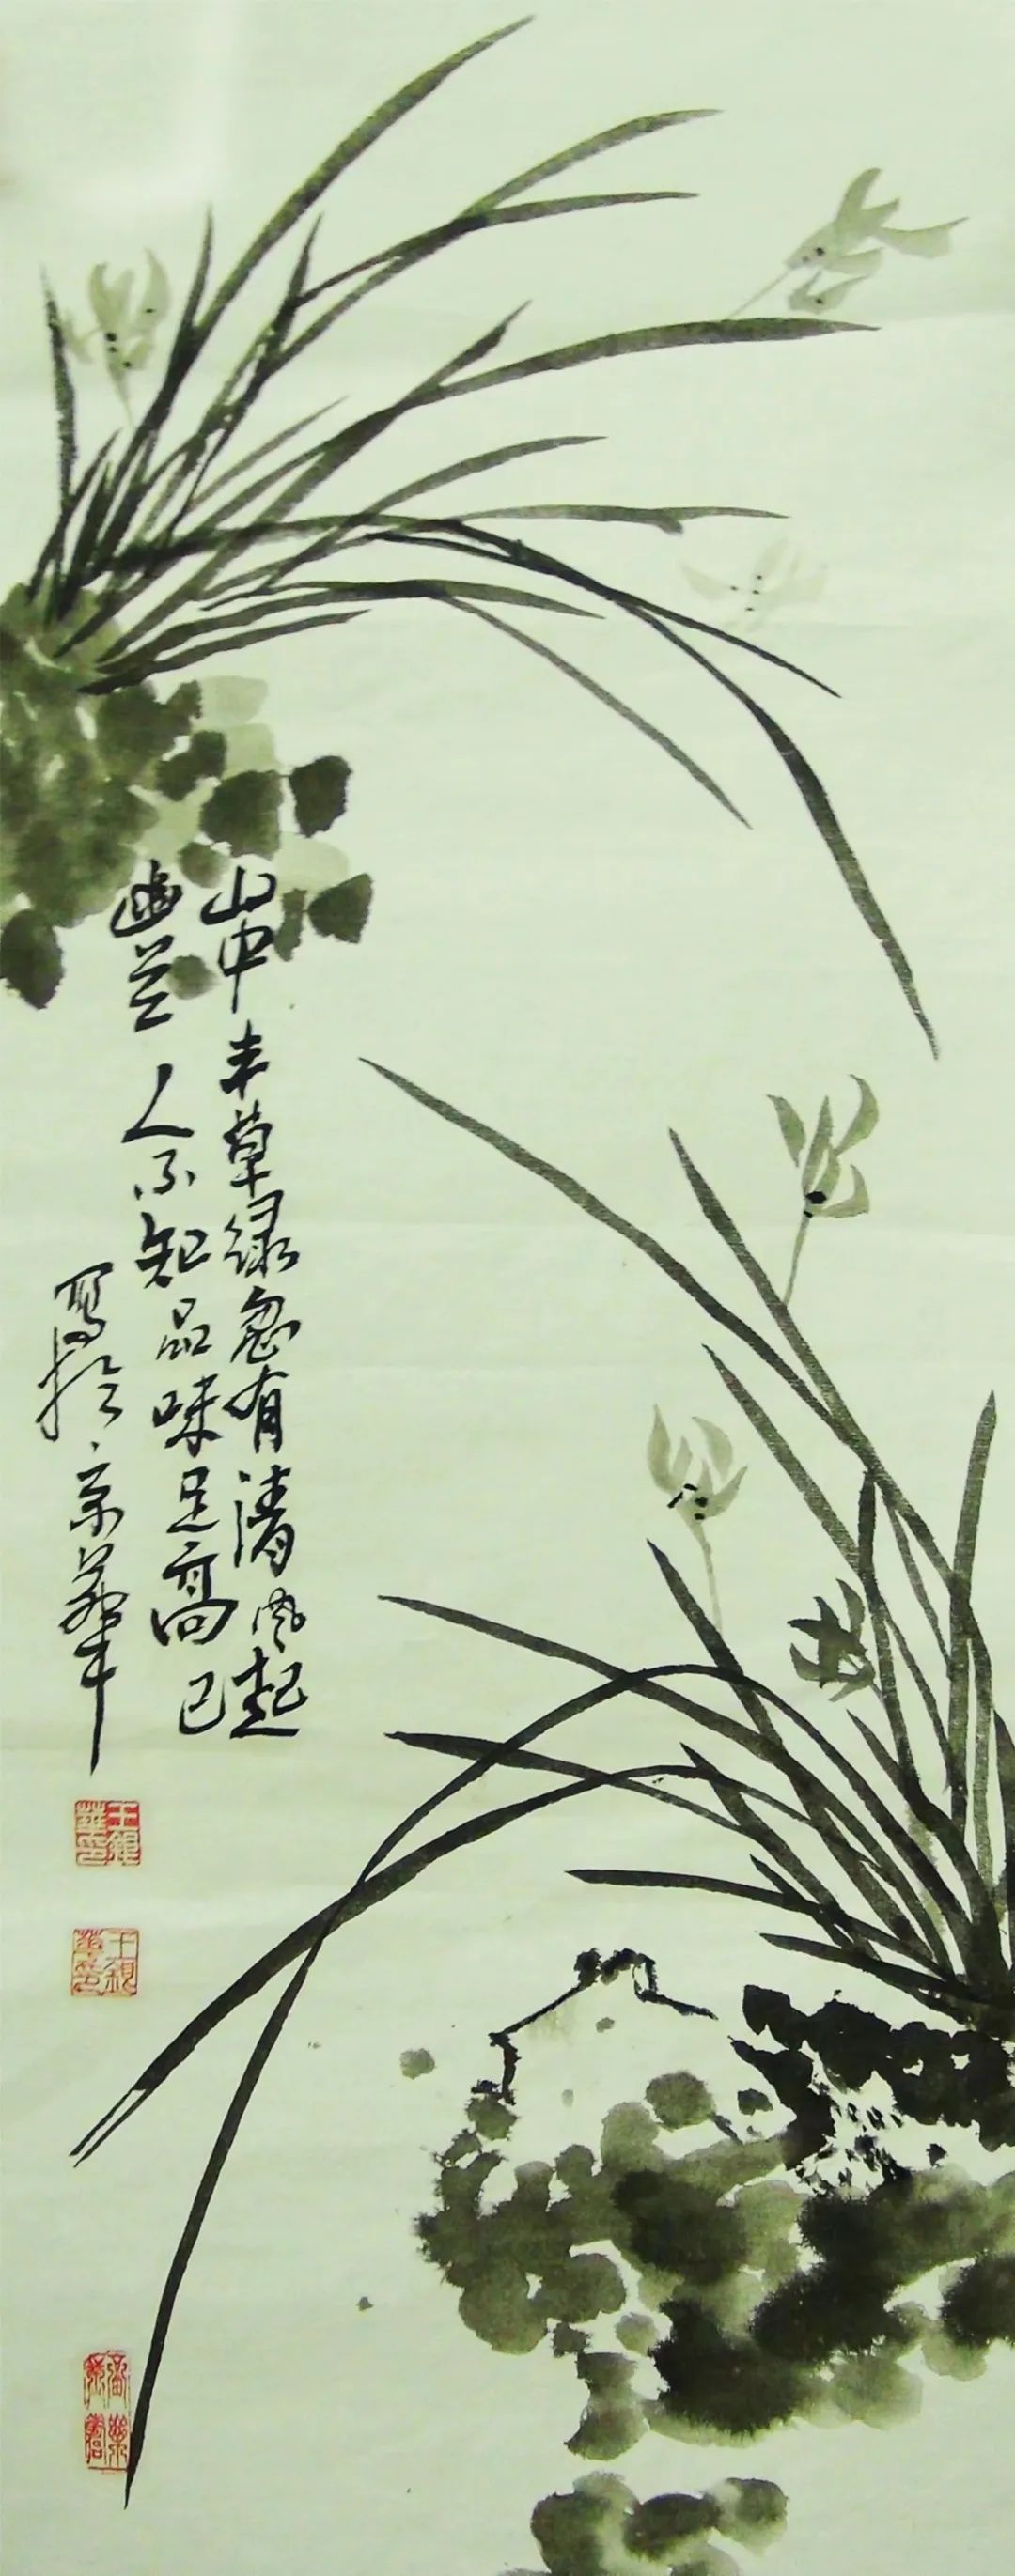 山中丰草绿忽有清风起
幽兰人不知品味足高已
写于京华
王银
华印